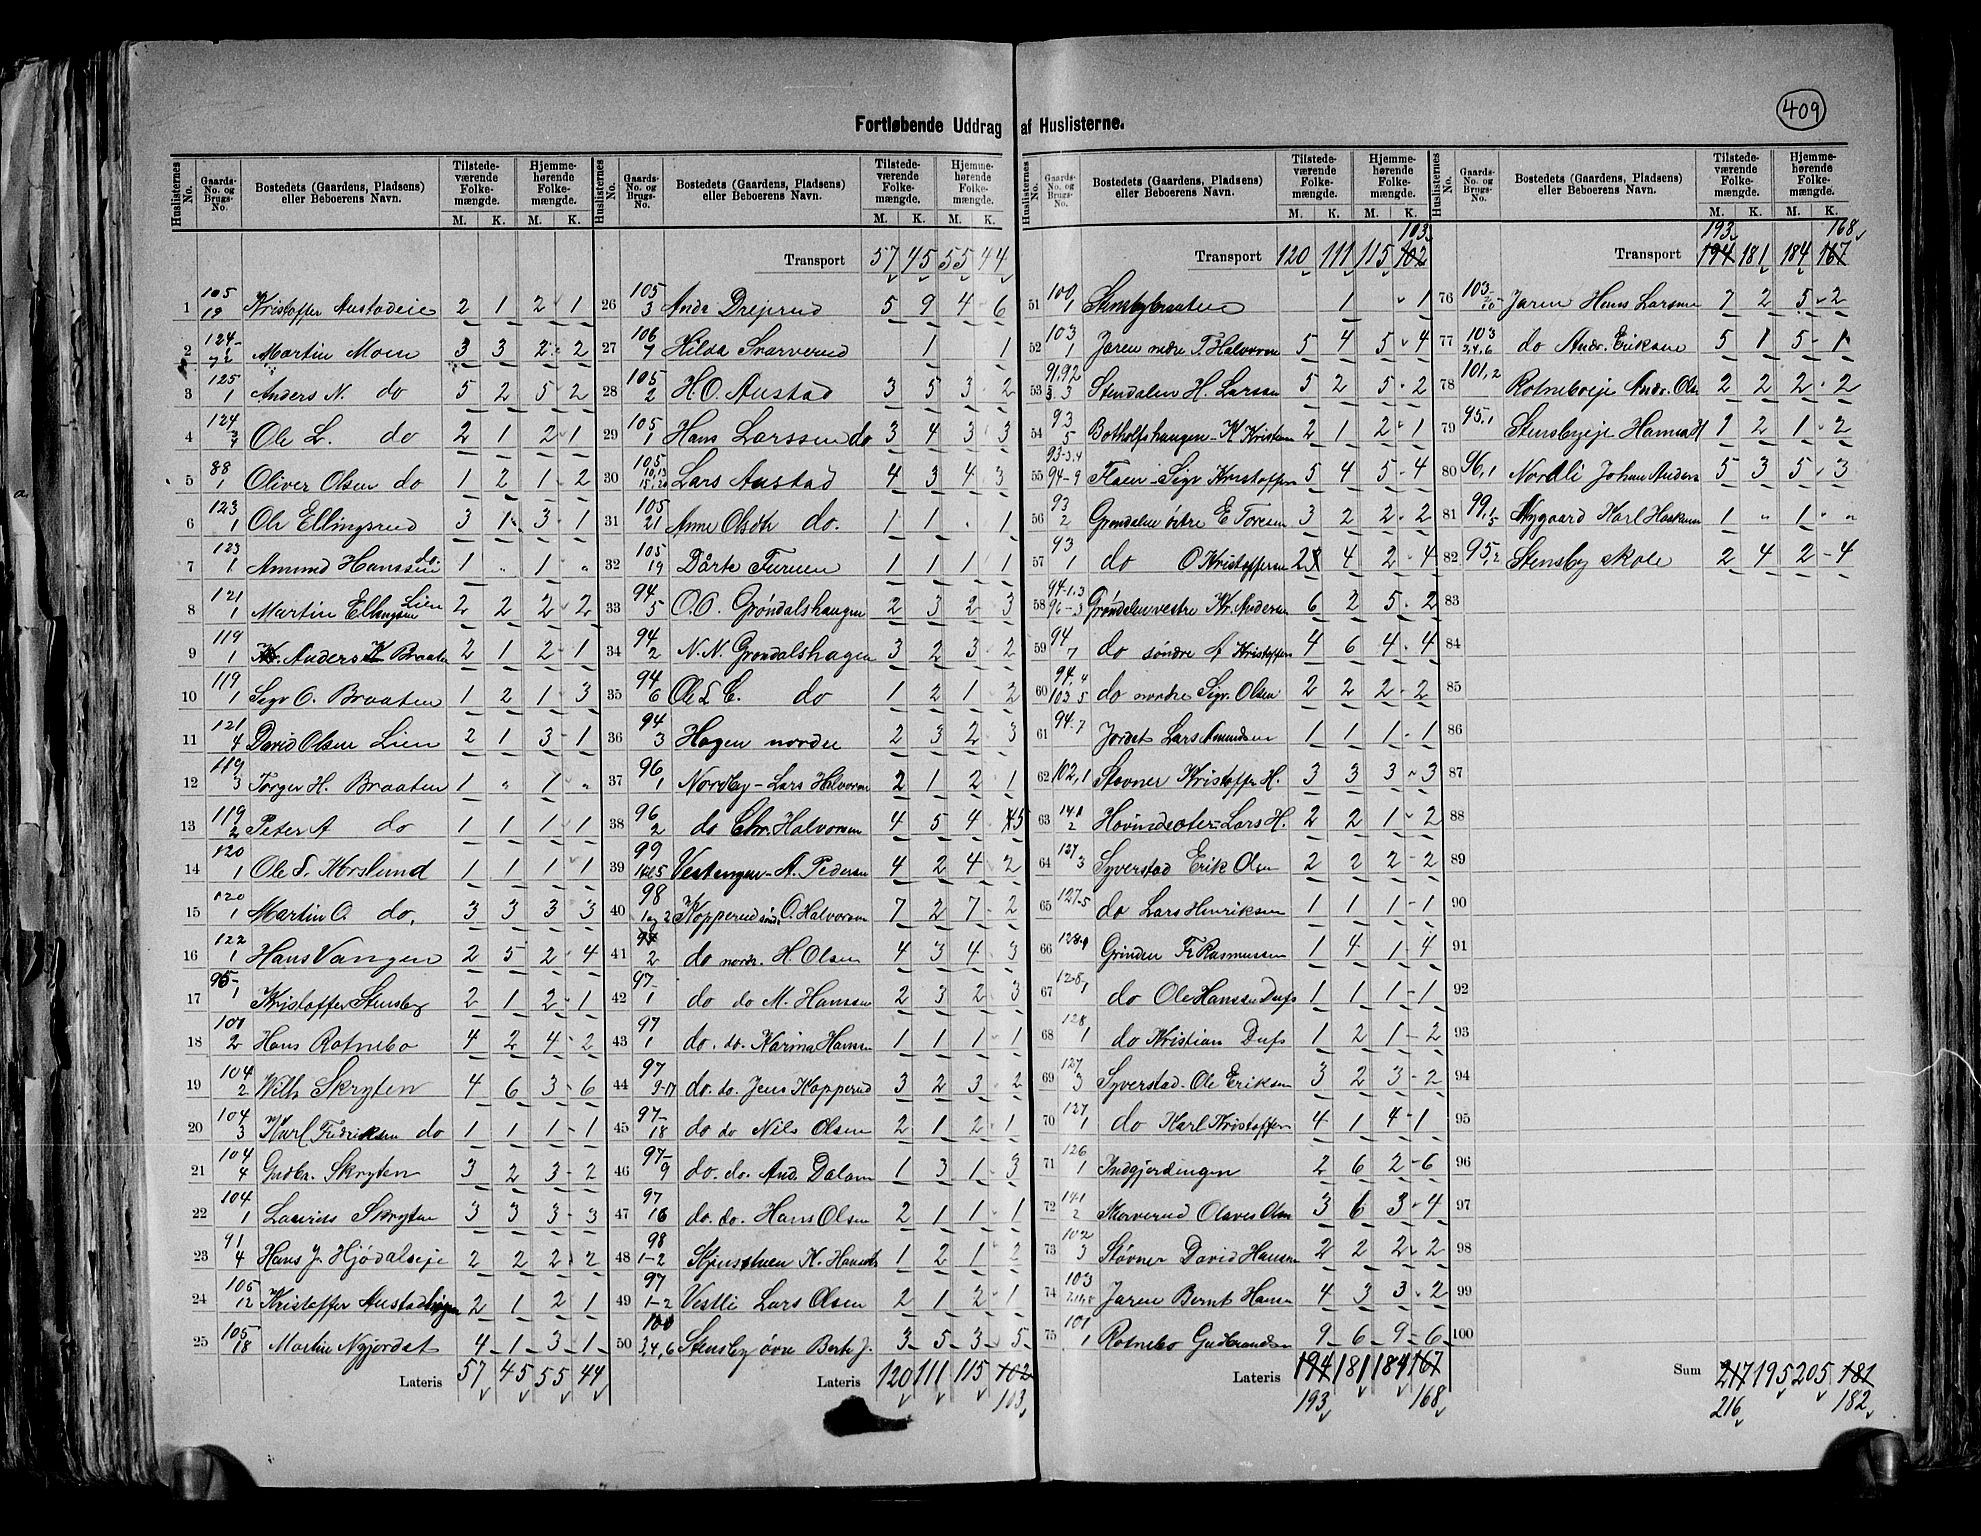 409
Fortløbende Uddrag af Huslisterne.
Huslisternes No. Gaards-No. og Brugs-No. Bostedets (Gaardens, Pladsens) eller Beboerens Navn. Tilstedeværende Folkemængde. M. K. Hjemmehørende Folkemængde. M. K.
1 105 19 Kristoffer Austadeie 2 1 2 1
2 124 Martin Moen 3 3 2 2
3 125 1 Anders N. do 5 2 5 2
4 124 Ole L. do 2 1 2 1
5 88 1 Oliver Olsen do 1 2 1 2
6 123 1 Ole Ellingsrud 3 1 3 1
7 123 1 Amund Hanssen do. 1 " 1 "
8 121 1 Martin Ellingsen Lien 2 2 2 2
9 119 1 Anders K Braaten 2 1 2 1
10 119 1 Sigv O. Braaten 1 2 1 3
11 121 4 David Olsen Lien 2 1 3 1
12 119 3 Torger H. Braaten 1 " 1 "
13 119 2 Peter A do 1 1 1 1
14 120 1 Ole S. Korslund 1 1 1 1
15 120 1 Martin O. do. 3 3 3 3
16 122 1 Hans Vangen 2 5 2 4
17 95 1 Kristoffer Stensby 2 1 2 1
18 100 2 Hans Rotnebo 4 2 4 2
19 104 2 Wilh. Skryten 4 6 3 6
20 104 3 Karl Fredriksen do 1 1 1 1
21 104 4 Gudbr. Skryten 3 2 3 2
22 104 1 Laurits Skryten 3 3 3 3
23 91 4 Hans J. Hjødalseje 2 2 2 2
24 105 12 Kristoffer Austad 2 1 2 1
25 105 18 Martin Nyjordet 4 1 3 1
Lateris 57 45 55 44
Huslisternes No. Gaards-No. og Brugs-No. Bostedets (Gaardens, Pladsens) eller Beboerens Navn. Tilstedeværende Folkemængde. M. K. Hjemmehørende Folkemængde. M. K.
Transport 57 45 55 44
26 105 3 Andr Drejerud 5 9 4 6
27 106 7 Hilda Svarverud 1 1
28 105 2 H. O. Austad 3 5 3 2
29 105 1 Hans Larssen do 3 4 3 3
30 105 10,13 15,20 Lars Austad 4 3 4 3
31 105 21 Anne Olsdtr do. 1 1 . 1
32 105 19 Dårte Furuen 1 1 1 1
33 94 5 O. O. Grøndalshaugen 2 3 2 3
34 94 2 N. N. Grøndalshagen 3 2 3 2
35 94 6 Ole do 1 2 1 2
36 94 3 Hagen nordre 2 3 2 3
37 96 1 Nordby - Lars Halvorsen 2 1 2 1
38 96 2 do Chr. Halvorsen 4 5 4 5
39 99 Vestengen - A. Pedersen 4 2 4 2
40 98 1og2 Kopperud sønd. O. Halvorsen 7 2 7 2
41 97 2 do nordr. H. Olsen 4 3 4 3
42 97 1 do do M. Hansen 2 3 2 3
43 97 1 do. do. Karina Hansen 1 1 1 1
44 97 9-17 do. do. Jens Kopperud 3 2 3 2
45 97 18 do do Nils Olsen 2 1 2 1
46 97 9 do. do. And. Dalam 1 3 1 3
47 97 16 do. do. Hans Olsen 2 1 1 1
48 98 1-2 Stjusstuen K. 1 2 1 2
49 97 1-2 Vestli Lars Olsen 2 1 2 1
50 100 3,4,6 Stensby øvre Berte J. 3 5 3 5
Lateris 120 111 115 102
103
Huslisternes No. Gaards-No. og Brugs-No. Bostedets (Gaardens, Pladsens) eller Beboerens Navn. Tilstedeværende Folkemængde. M. K. Hjemmehørende Folkemængde. M. K.
103
Transport 120 111 115 102
51 100 1 Stensbybraaten 1 " 1
52 103 1 Jaren nedre T. Halvorsen 5 4 5 4
53 91,92 3 3 Stendalen H. Larsen 5 2 5 2
54 93 5 Botholfshaugen - K Kristensen 2 1 2 1
55 93-3,4 94-9 Flaen - Sigv Kristoffersen 5 4 5 4
56 93 2 Grøndalen østre E Toresen 3 2 2 2
57 93 1 do O Kristoffersen 2 4 2 4
58 94-1,3 96-3 Grøndalen vestre Kr. Andersen 6 2 5 2
59 94 7 do søndre A Kristoffers 4 6 4 4
60 94,4 103,5 do nordre Sigv. Olsen 2 2 2 2
61 94-7 Jordet Lars Amundsen 1 1 1 1
62 102,1 Stovner Kristoffer H. 3 3 3 3
63 141 2 Hovindsæter - Lars H. 2 2 1 2
64 127 3 Syverstad Erik Olsen 2 2 2 2
65 127-5 do Lars Henriksen 1 1 1 1
66 128-1 Grinden Fr Rasmussen 1 4 1 4
67 128,1 do Ole Hanssen Dufs 1 1 1 1
68 128 1 do Kristian Dufs 1 2 1 2
69 127 3 Syverstad - Ole Eriksen 3 2 3 2
70 127 1 do Karl Kristoffers 4 1 4 1
71 126 1 Indgjerdingen 2 6 2 6
72 141 2 Skorverud Olaves Olsen 3 6 3 4
73 102 3 Støvner David Hansen 2 2 2 2
74 103 Jaren Bernt Hansen 4 3 3 2
75 101 1 Rotnebo Gudbrandsen 9 6 9 6
Lateris 194 181 184 167
193 168
Huslisternes No. Gaards-No. og Brugs-No. Bostedets (Gaardens, Pladsens) eller Beboerens Navn. Tilstedeværende Folkemængde. M. K. Hjemmehørende Folkemængde. M. K.
193 168
Transport 194 181 184 167
76 103 Jaren Hans Larsen 7 2 5 2
77 103 2,4,6 do Andr. Eriksen 5 1 5 1
78 101,2 Rotneboeje Andr. Olsen 2 2 2 2
79 95,1 Stensbyeje Hanna H 1 2 1 2
80 96,1 Nordli Johan Anders 5 3 5 3
81 99,1 5 Nygaard Karl Haskensen 1 " 1 "
82 95,2 Stensby skole 2 4 2 4
83
84
85
86
87
88
89
90
91
92
93
94
95
96
97
98
99
100
Sum 217 195 205 181
216 182